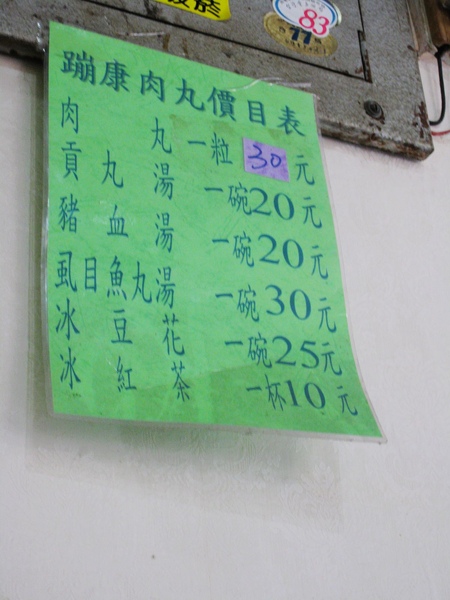 蹦康肉丸價目表
肉丸 一粒 30 元
貢丸湯 一碗 20 元
豬血湯 一碗 20 元
虱目魚丸湯 一碗 30 元
冰豆花 一碗 25 元
冰紅茶 一杯 10 元
83
77